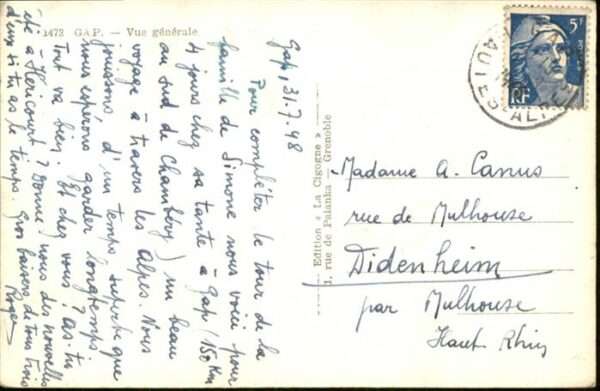 1472 GAP. — Vue générale
Gap, 31.7.48
Pour compléter le tour de la
famille de Simone nous voici pour
4 jours chez sa tante à Gap (150 Km
au sud de Chambéry) un beau
voyage à travers les Alpes. Nous
jouissons d'un temps superbe que
nous espérons garder longtemps.
Tout va bien. Et chez vous ? As-tu
été à Héricourt ? Donne-nous des nouvelles
d'eux si tu as le temps. Gros baisers de tous trois
Roger
Edition « La Cigogne »
1, rue de Palanka — Grenoble
5F
RF
HAUTES ALPES
Madame A. Canus
rue de Mulhouse
Didenheim
par Mulhouse
Haut Rhin